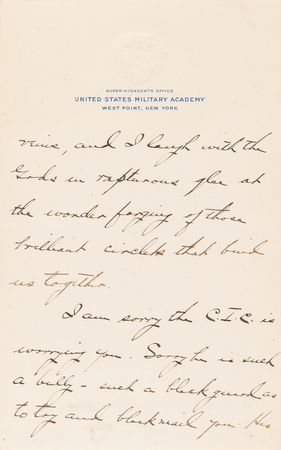 SUPERINTENDENT'S OFFICE
UNITED STATES MILITARY ACADEMY
WEST POINT, NEW YORK
veins, and I laugh with the
Gods in rapturous glee at
the wonder forging of those
brilliant circlets that bind
us together.
I am sorry the C.I.C. is
worrying you. Sorry he is such
a bully - such a blackguard as
to try and blackmail you. His